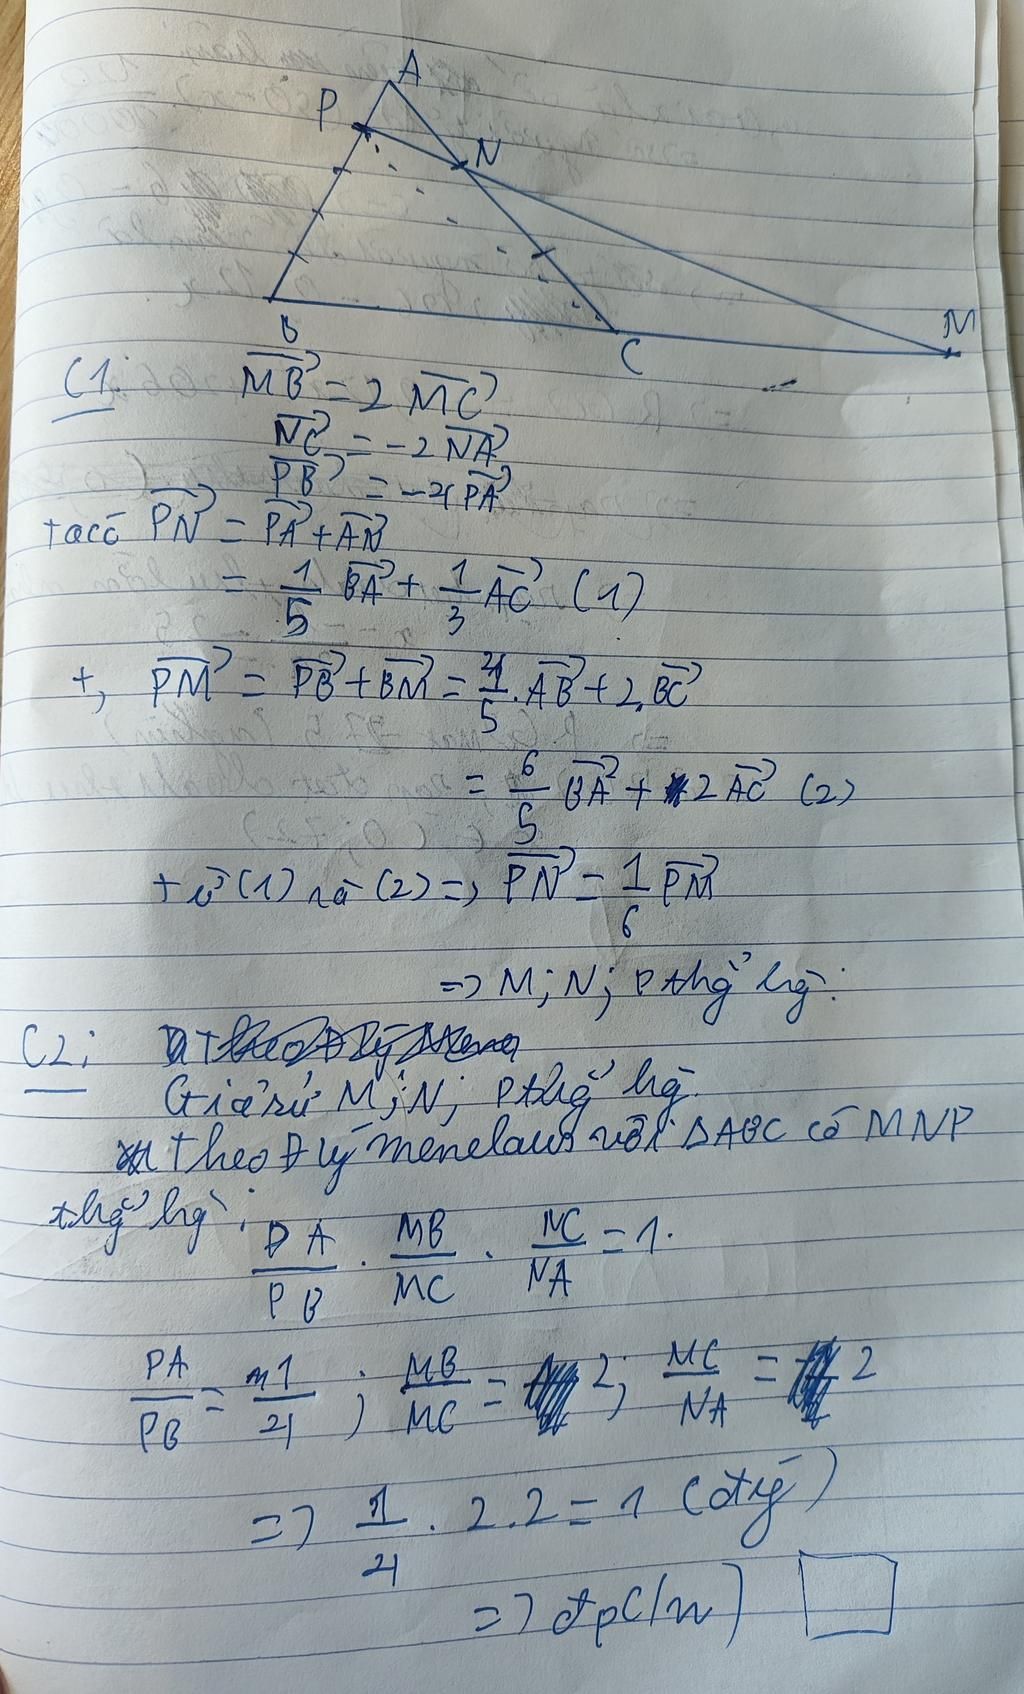 A
P
N
B
C
M
C1:
$\overrightarrow{MB} = 2\overrightarrow{MC}$
$\overrightarrow{NC} = -2\overrightarrow{NA}$
$\overrightarrow{PB} = -4\overrightarrow{PA}$
ta có $\overrightarrow{PN} = \overrightarrow{PA} + \overrightarrow{AN}$
$= \frac{1}{5}\overrightarrow{BA} + \frac{1}{3}\overrightarrow{AC}$ (1)
+, $\overrightarrow{PM} = \overrightarrow{PB} + \overrightarrow{BM} = \frac{4}{5}.\overrightarrow{AB} + 2.\overrightarrow{BC}$
$= \frac{6}{5}\overrightarrow{BA} + 2\overrightarrow{AC}$ (2)
từ (1) và (2) => $\overrightarrow{PN} = \frac{1}{6}\overrightarrow{PM}$
=> M; N; P thẳg hàg.
C2:
Giả sử M; N; P thẳg hàg.
theo Đ lý menelaus với ΔABC có MNP
thẳg hàg:
$\frac{PA}{PB} . \frac{MB}{MC} . \frac{NC}{NA} = 1.$
$\frac{PA}{PB} = \frac{1}{4}$ ; $\frac{MB}{MC} = 2$; $\frac{MC}{NA} = 2$
=> $\frac{1}{4} . 2.2 = 1$ (đ lý)
=> đpc/m